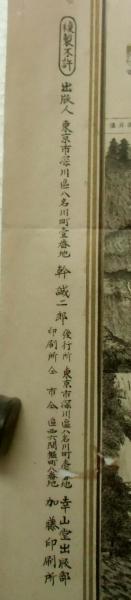 複製不許
出版人 東京市深川區八名川町壹番地 幹誠二郎
發行所 東京市深川區八名川町壱番地 幸山堂出版部
印刷所 仝市仝區西六間堀町八番地 加藤印刷所